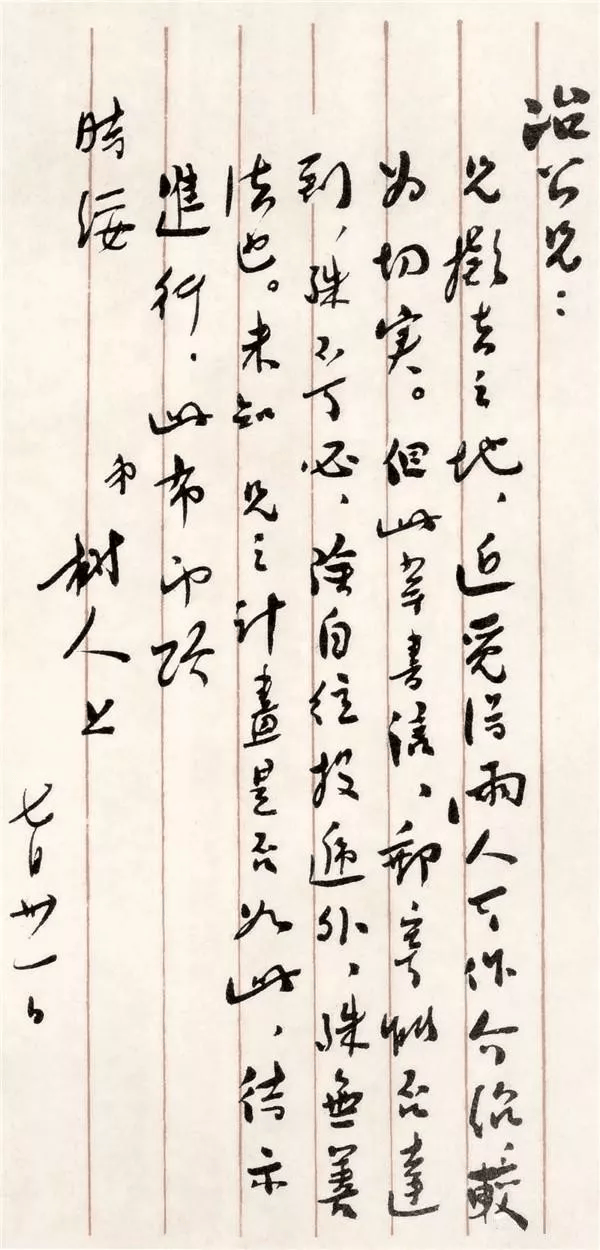 冶公兄：
兄擬去之地，近覓得兩人可作介紹，較
为切実。但此等書信、郵寄能否達
到，殊不可必，除自往投遞外，殊無善
法也。未知 兄之計畫是否如此，待示
進行，此布即頌
時綏
弟 樹人 上
七月卅一日